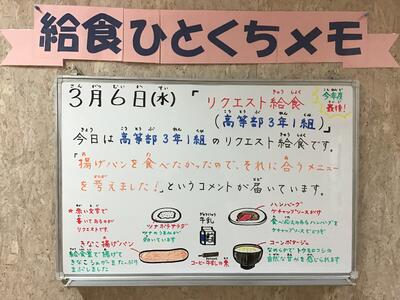 給食ひとくちメモ
3月6日(水)「リクエスト給食
(高等部3年1組)」
今年度
最後!
今日は高等部3年1組のリクエスト給食です。
「揚げパンを食べたかったので、それに合うメニュー
を考えました!」というコメントが届いています。
★赤い文字で
書いてあるのが
リクエストです。
ツナポテトサラダ
牛乳
ハンバーグ
ケチャップソースがけ
きなこ揚げパン
給食室で揚げて
きなこシュガーをたっぷり
まぶしました
コーヒー牛乳の素
コーンポタージュ
なめらかでトウモロコシの
自然な甘みを感じられます